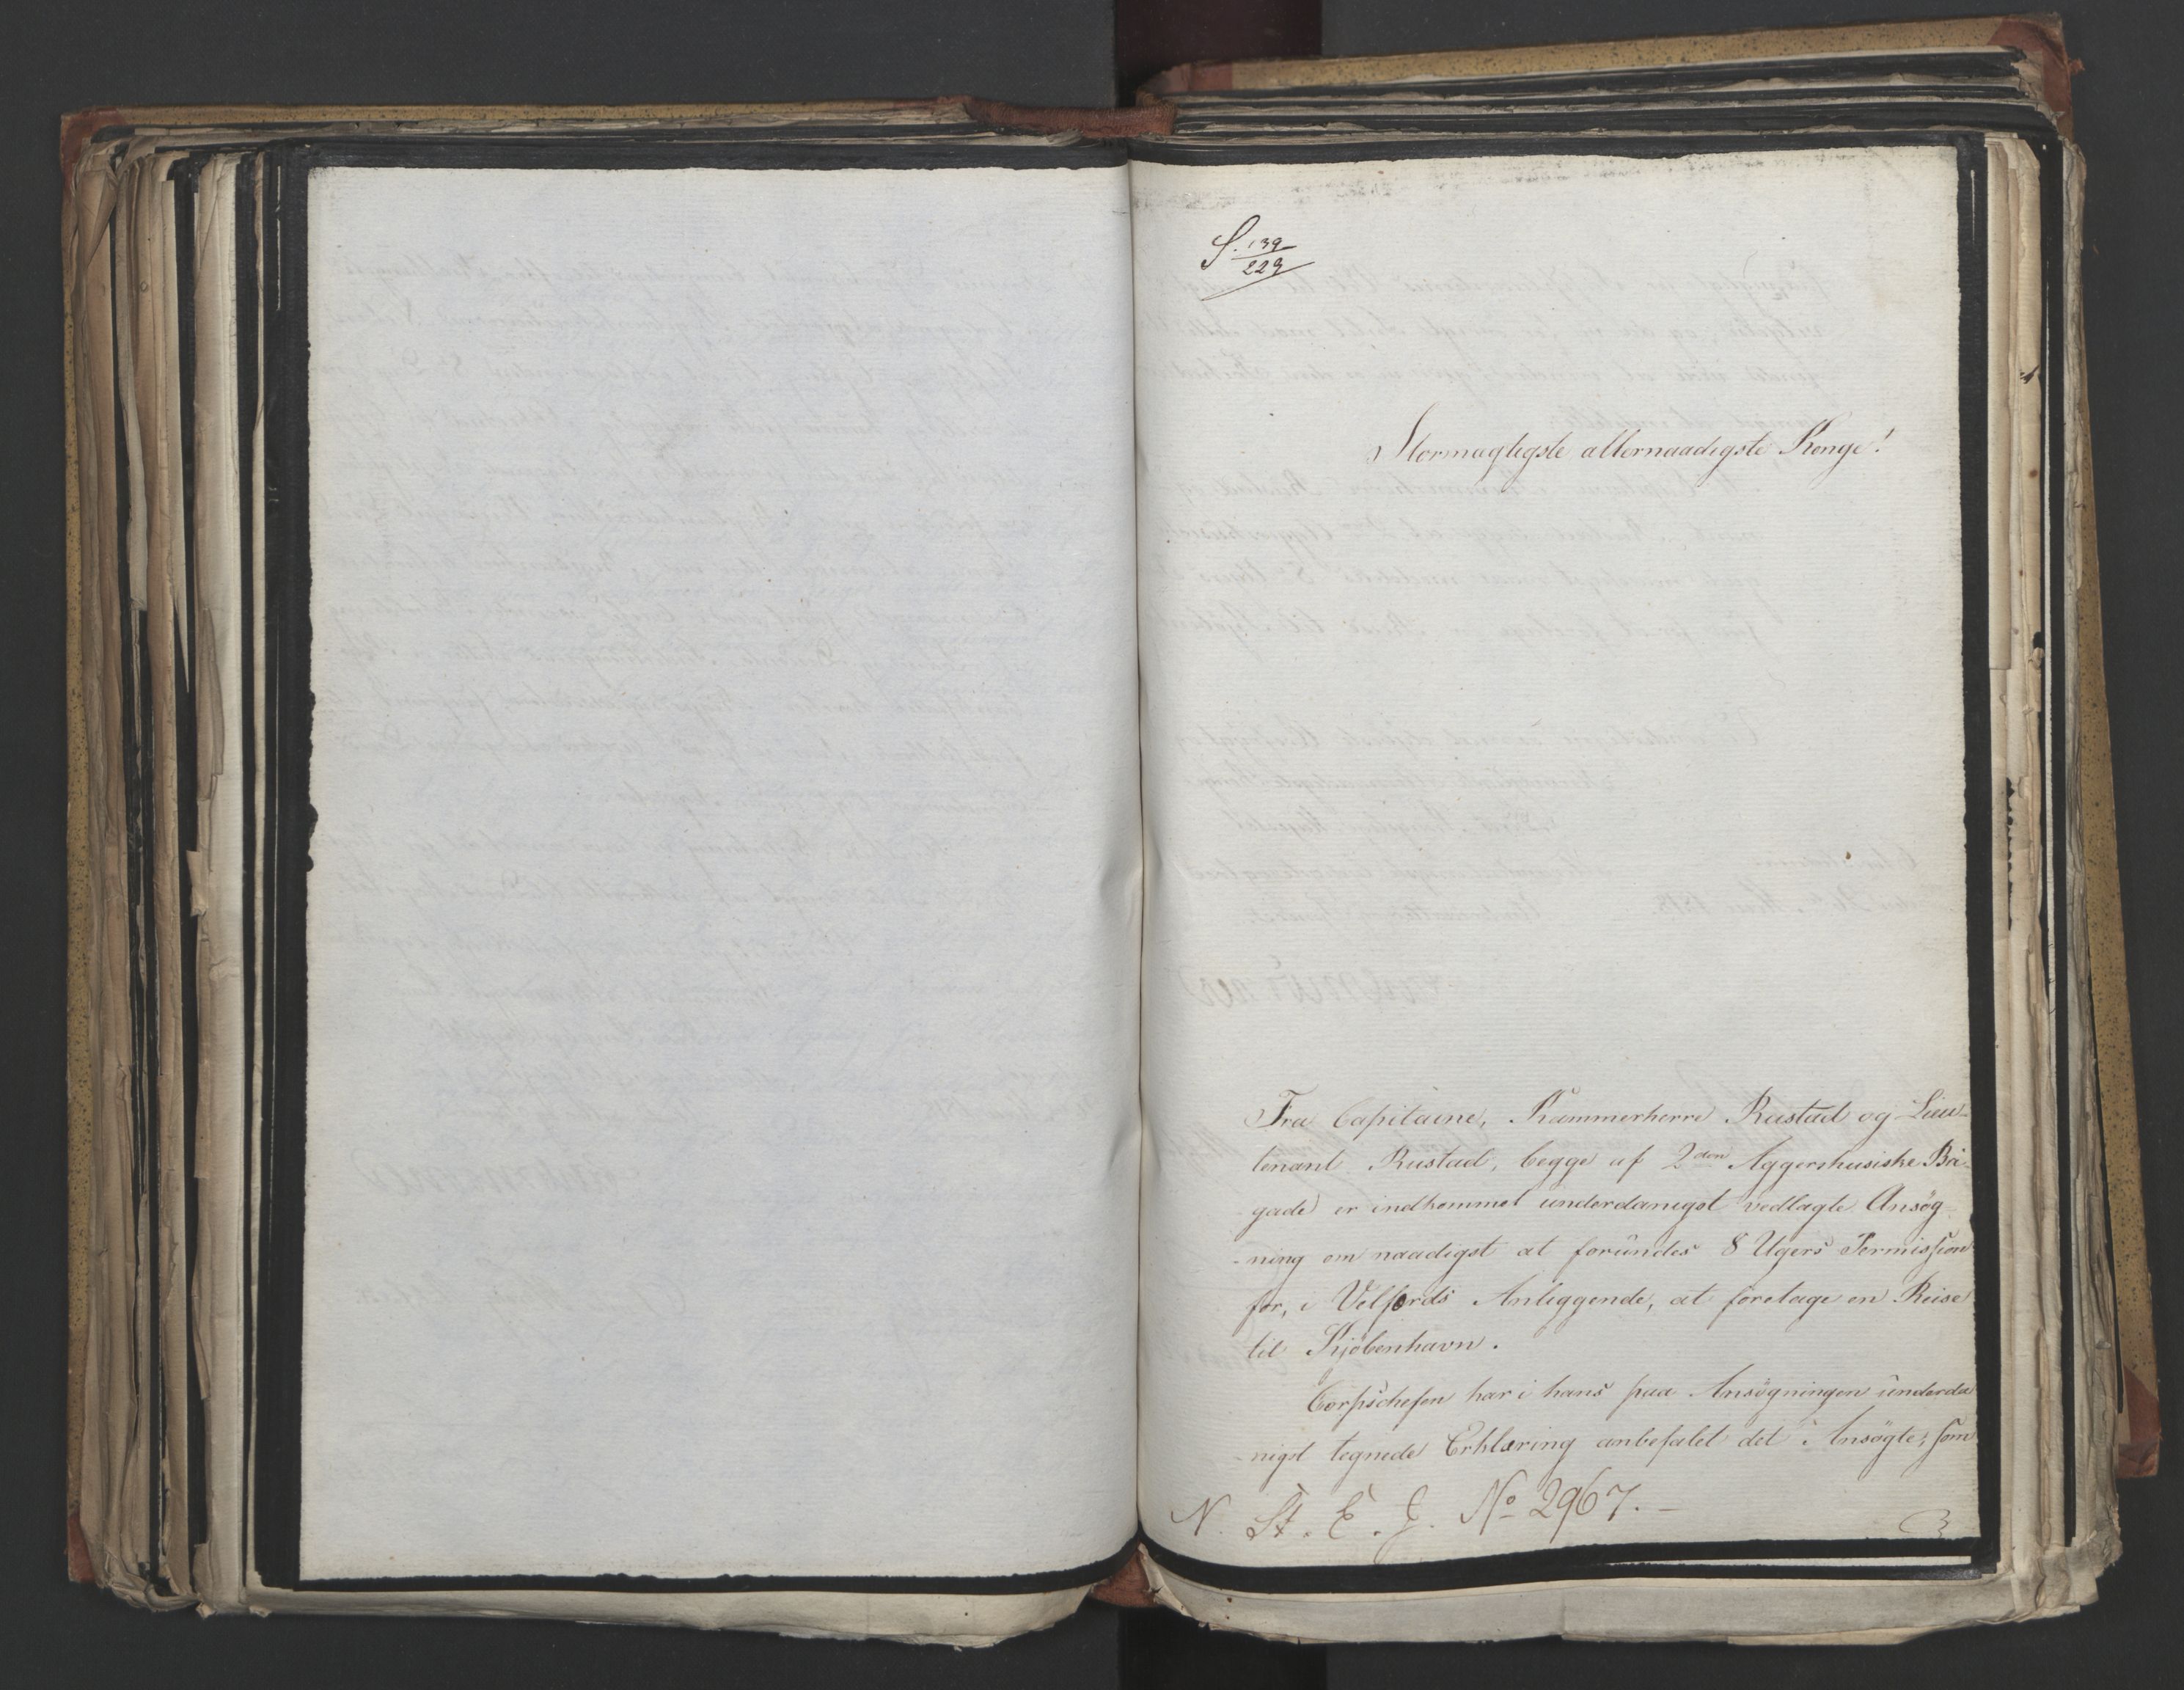 S. 139
229
Stormægtigste allernaadigste Konge!
Fra Capitaine, Kammerherre Rustad og Lieu-
tenant Rustad, begge af 2den Aggershusiske Bri-
gade er indkommet underdanigst vedlagte Ansøg-
-ning om naadigst at forundes 8 Ugers Permission
for, i Velfærds Anliggende, at foretage en Reise
til Kjöbenhavn.
Corpschefen har i hans paa Ansögningen underda-
-nigst tegnede Erklæring anbefalet det Ansøgte; som
N. St. E. J. No 2967. -